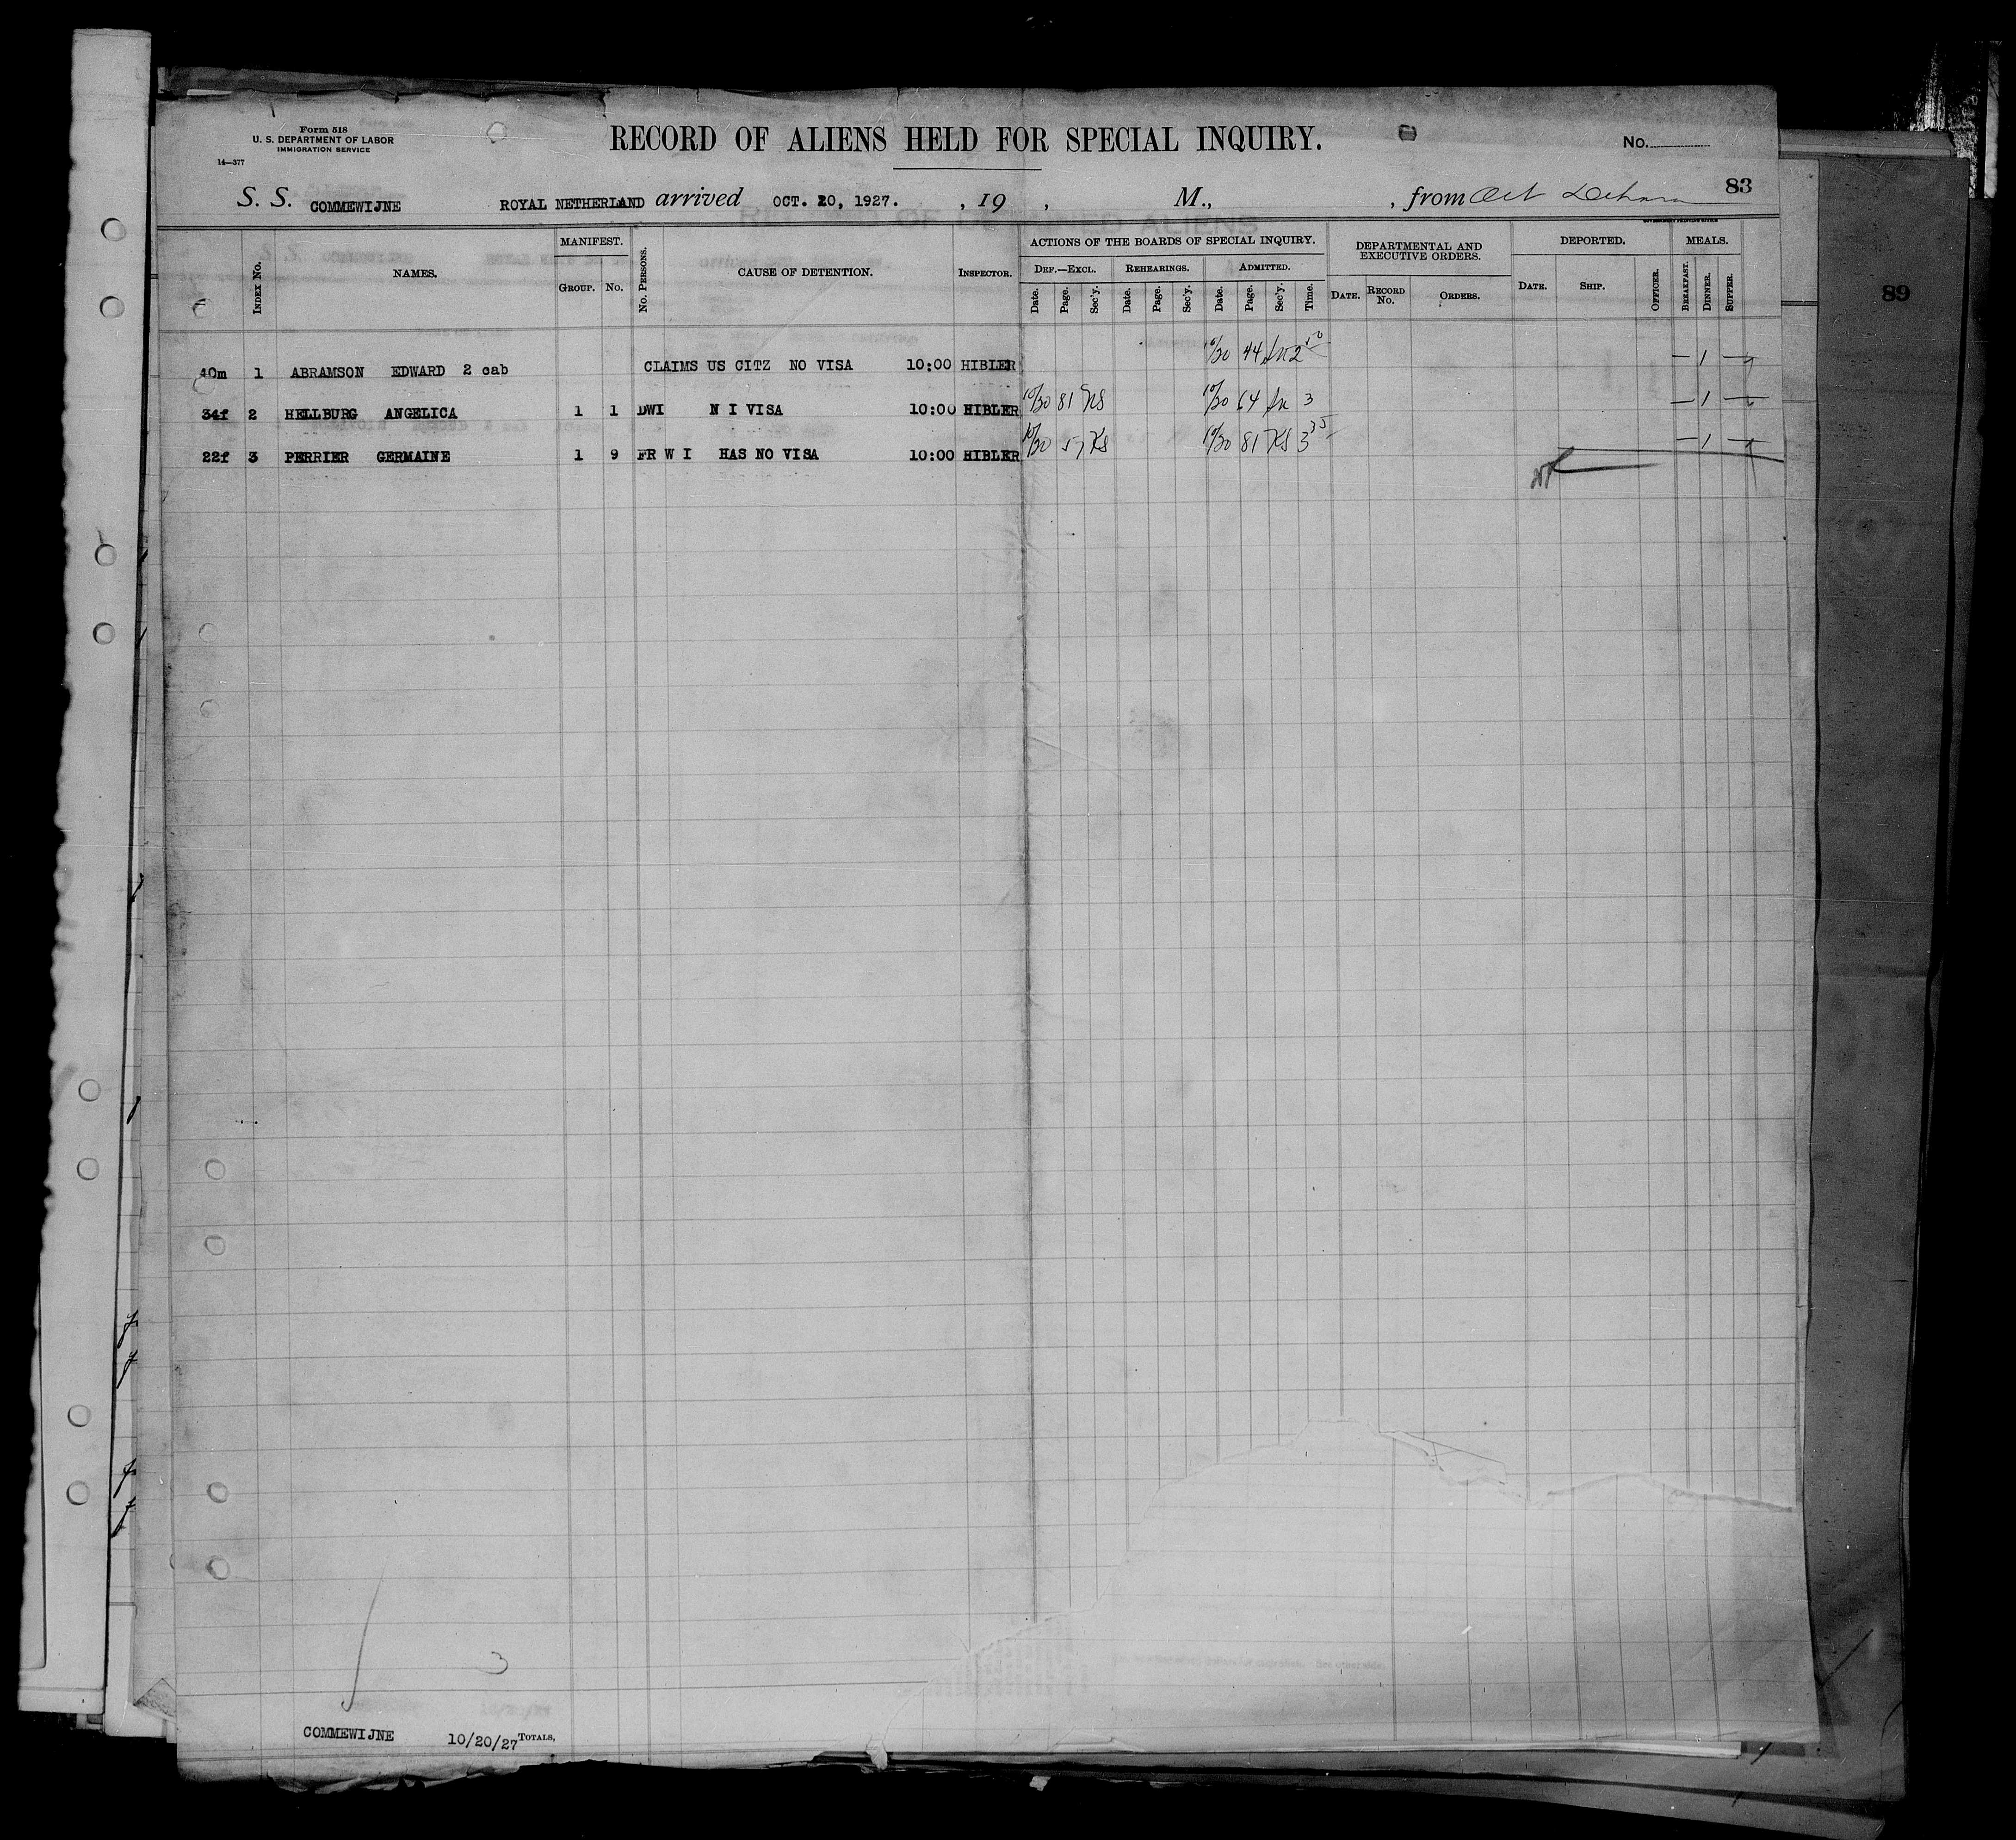 Form 518
U. S. DEPARTMENT OF LABOR
IMMIGRATION SERVICE
14—377
RECORD OF ALIENS HELD FOR SPECIAL INQUIRY.
No.
83
S. S. COMMEWIJNE ROYAL NETHERLAND arrived OCT. 20, 1927. , 19 , M., , from
GOVERNMENT PRINTING OFFICE
INDEX No. NAMES. MANIFEST. GROUP. No. No. PERSONS. CAUSE OF DETENTION. INSPECTOR. ACTIONS OF THE BOARDS OF SPECIAL INQUIRY. DEF.—EXCL. Date. Page. Sec'y. REHEARINGS. Date. Page. Sec'y. ADMITTED. Date. Page. Sec'y. Time. DEPARTMENTAL AND EXECUTIVE ORDERS. DATE. RECORD No. ORDERS. DEPORTED. DATE. SHIP. OFFICER. MEALS. BREAKFAST. DINNER. SUPPER.
40m 1 ABRAMSON EDWARD 2 cab CLAIMS US CITZ NO VISA 10:00 HIBLER 10/20 44 2 — 1 —
34f 2 HELLBURG ANGELICA 1 1 DWI N I VISA 10:00 HIBLER 10/20 81 KS 10/20 64 3 — 1 —
22f 3 PERRIER GERMAINE 1 9 FR W I HAS NO VISA 10:00 HIBLER 10/20 57 KS 10/20 81 KS 3 35 — 1 —
89
3
COMMEWIJNE 10/20/27 TOTALS,